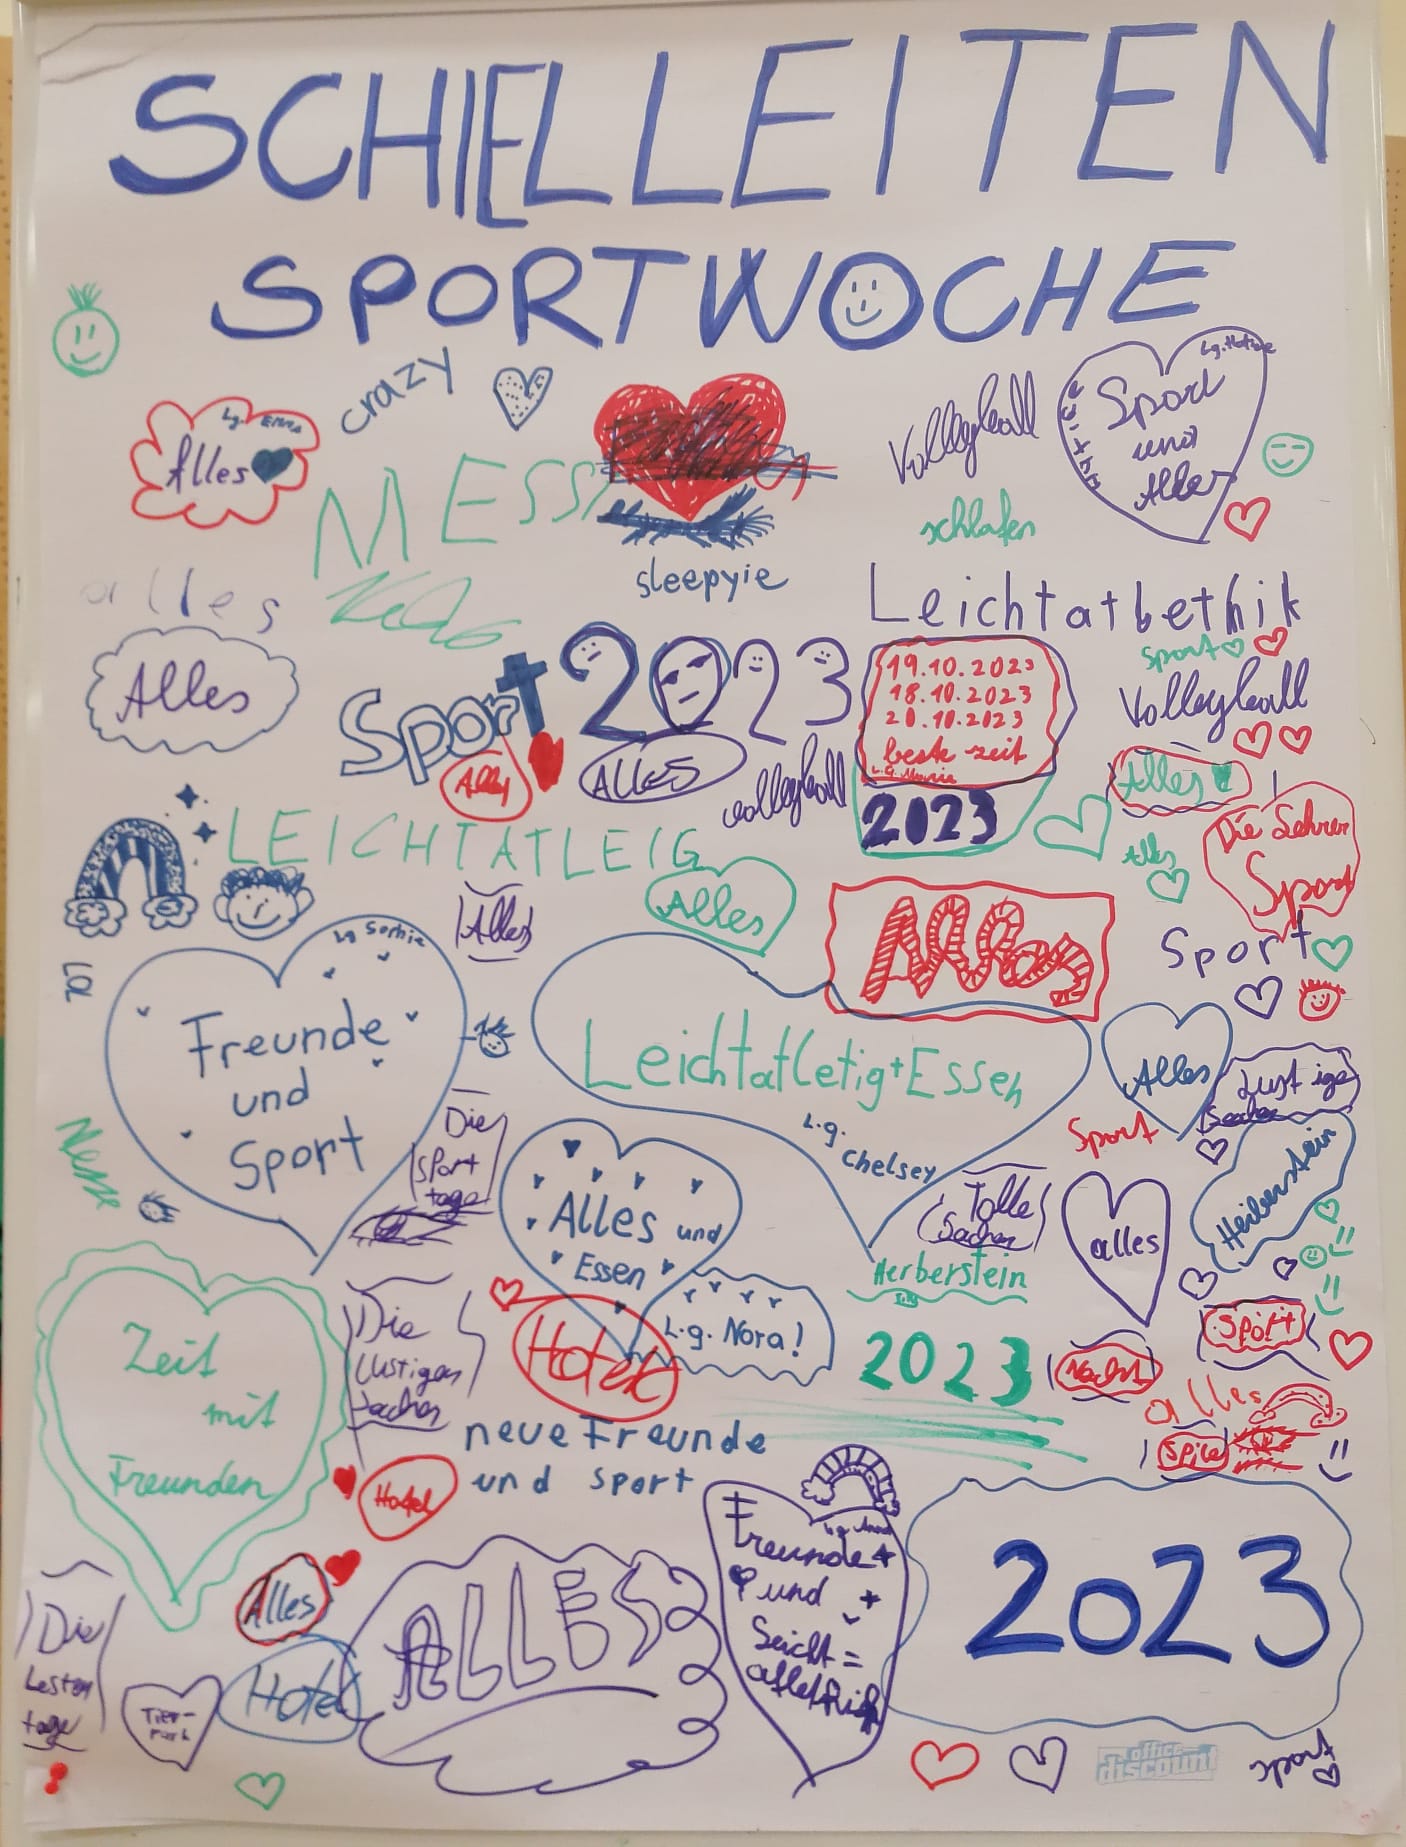 SCHIELLEITEN
SPORTWOCHE
crazy
Lg. Emma
Alles
MESSI
Volleyball
Sport
und
Alles
schlafen
sleepyie
alles
Alles
Leichtatbethik
Sport
2023
19.10.2023
18.10.2023
20.10.2023
beste zeit
2023
sport
Volleyball
ALLES
volleyball
Alles
Die Lehrer
Sport
Alles
LEICHTATLEIG
Alles
Alles
Alles
Sport
LOL
Lg Sophie
Freunde
und
Sport
Leichtatletig+Essen
L.g.
Chelsey
Alles
Lustige
Sachen
Sport
Die
Sport
tage
Alles und
Essen
L.g. Nora!
Tolle
Sachen
alles
Heiberstein
Herberstein
Zeit
mit
Freunden
Die
lustigen
Sachen
Hotel
2023
Nacht
Sport
alles
neue Freunde
und Sport
Hotel
Alles
Hotel
ALLES
Freunde+
und +
Leicht=
athletik
2023
Die
besten
tage
Tier-
park
office
discount
sport